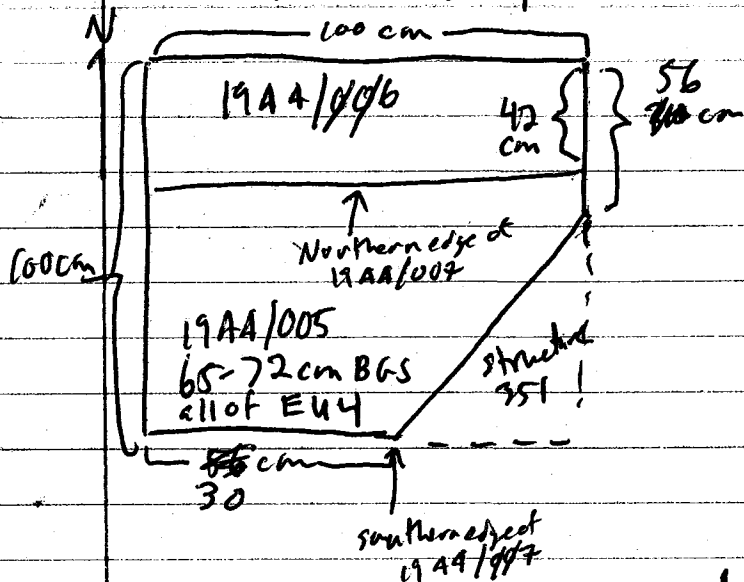 N
100 cm
19AA/006
42
cm
56
cm
Northern edge of
19AA/007
100cm
19AA/005
65-72 cm BGS
all of EU4
structure
351
cm
30
southern edge of
19AA/007